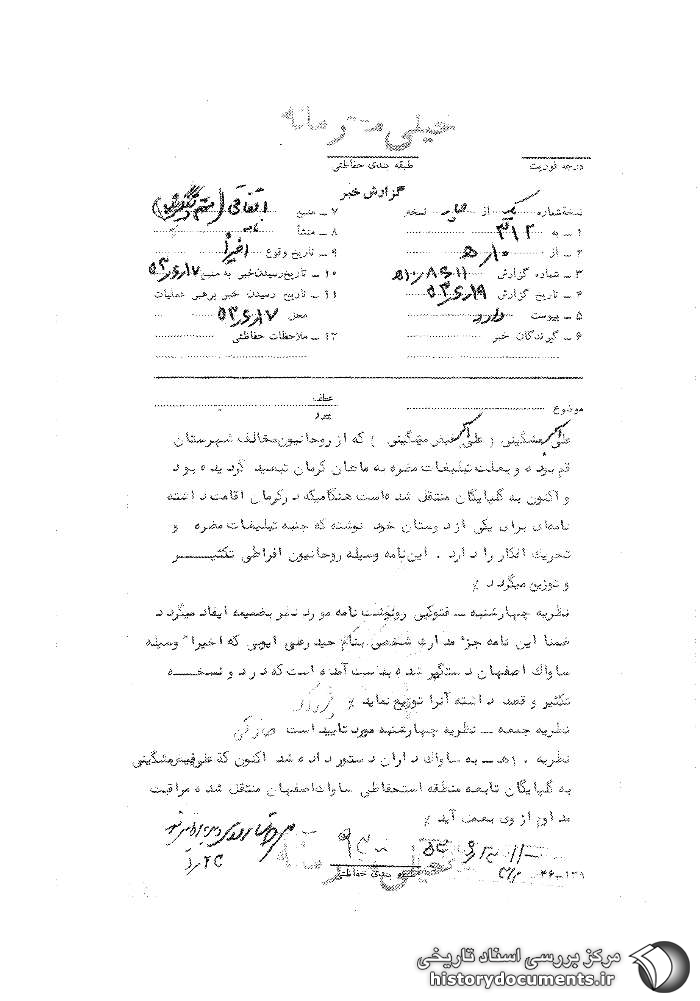 خیلی محرمانه
درجه فوریت
طبقه بندی حفاظتی
گزارش خبر
نسخه شماره یک از چهار نسخه
۱ ـ به ۳۱۲
۲ ـ از ۱۰ ه‍
۳ ـ شماره گزارش
۴ ـ تاریخ گزارش ۵۳/۶/۱۹
۵ ـ پیوست دارد
۶ ـ گیرندگان خبر
۷ ـ منبع اتفاقی
۸ ـ منشأ
۹ ـ تاریخ وقوع اخیراً
۱۰ ـ تاریخ رسیدن خبر به منبع ۵۳/۶/۱۷
۱۱ ـ تاریخ رسیدن خبر برهبر عملیات
محل ۵۳/۶/۱۷
۱۲ ـ ملاحظات حفاظتی
موضوع
عطف
پیرو
علی اکبر مشگینی ( علی اکبر فیض مشگینی ) که از روحانیون مخالف شهرستان
قم بوده و بعلت تبلیغات مضره به ماهان کرمان تبعید گردیده بود
و اکنون به گلپایگان منتقل شده است هنگامیکه در کرمان اقامت داشته
نامه‌ای برای یکی از دوستان خود نوشته که جنبه تبلیغات مضره و
تحریک افکار را دارد . این نامه وسیله روحانیون افراطی تکثیر
و توزیع میگردد
نظریه چهارشنبه ـ فتوکپی رونوشت نامه مورد نظر بضمیمه ایفاد میگردد
ضمنا این نامه جزء مدارک شخصی بنام حیدرعلی ایوبی که اخیراً وسیله
ساواک اصفهان دستگیر شده بدست آمده است که در دو نسخه
تکثیر و قصد داشته آنرا توزیع نماید
نظریه جمعه ـ نظریه چهارشنبه مورد تایید است
نظریه ۱۰ ه‍ ـ به ساواک داران دستور داده شد اکنون که علی فیض مشگینی
به گلپایگان تابعه منطقه استحفاظی ساواک اصفهان منتقل شده مراقبت
مداوم از وی بعمل آید
خیلی محرمانه
طبقه بندی حفاظتی
مرکز بررسی اسناد تاریخی
historydocuments.ir